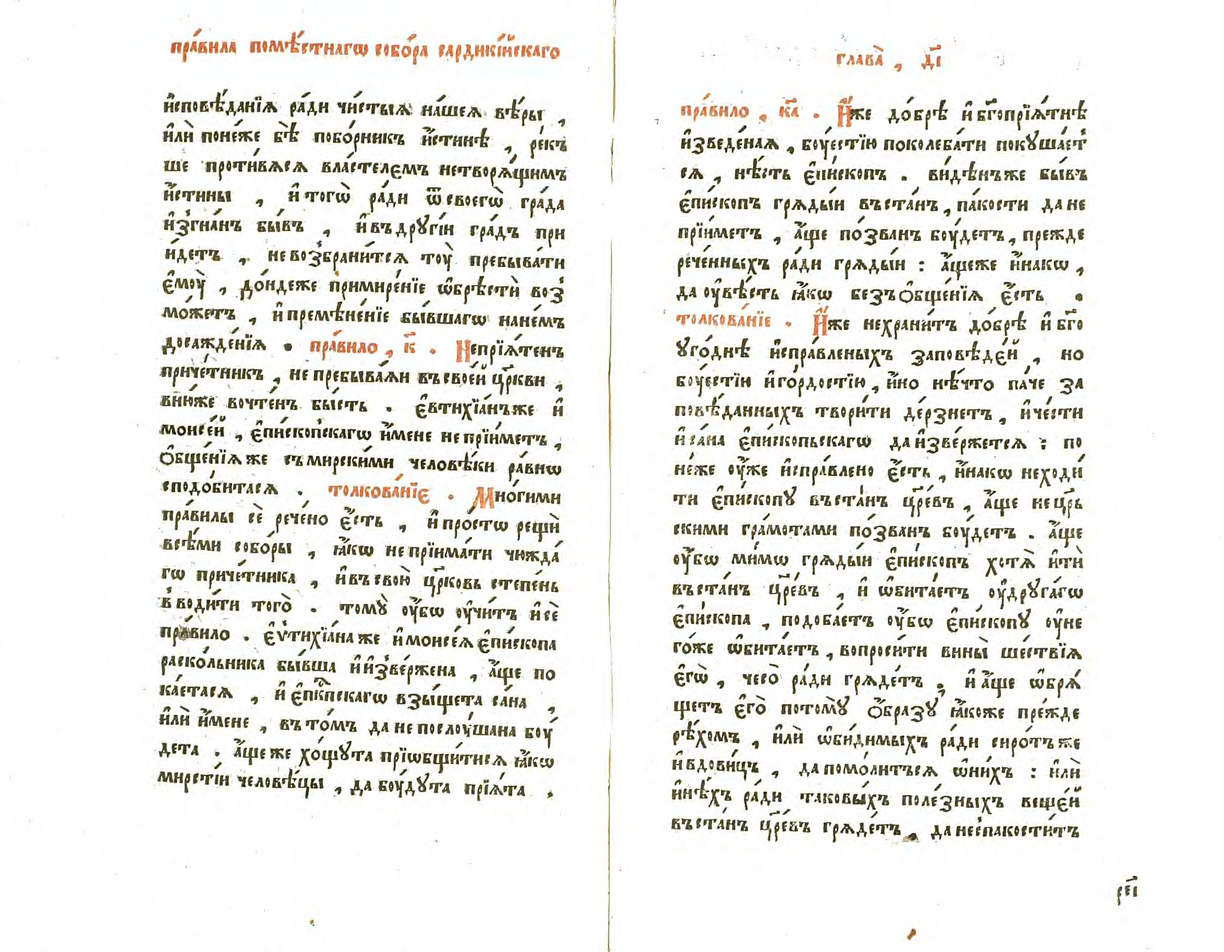 пра́вила помѣ́стнагѡ собо́ра сардикі́йскаго
и҆сповѣ́данїѧ ра́ди чи́стыѧ на́шеѧ вѣ́ры ,
и҆лѝ поне́же бѣ̀ побо́рникъ и҆́стинѣ , ре́къ
ше проти́вѧсѧ власте́лемъ нетворѧ́щимъ
и҆́стины , и҆ тогѡ̀ ра́ди ѿ своегѡ̀ гра́да
и҆згна́нъ бы́въ , и҆ въ дрꙋгі́и гра́дъ при
и́детъ , не возбрани́тсѧ тоу̀ пребыва́ти
є҆мꙋ̀ , до́ндеже примире́нїе ѡ҆брѣстѝ воз̾
мо́жетъ , и҆ премѣне́нїе бы́вшагѡ на не́мъ
досажде́нїѧ . пра́вило , к҃ . Непрїѧ́тенъ
приче́тникъ , не пребыва́ѧи въ свое́й цр҃кви ,
в ню́же вочте́нъ бы́сть . є҆втихїа́нъ же и҆
моисе́й , є҆пи́скопскагѡ и҆́мене не прїи́метъ ,
ѻ҆бще́нїѧ же съ мирски́ми человѣ́ки ра́внѡ
сподо́битасѧ . толкова́нїе . Мно́гими
пра́вилы сѐ рече́но є҆́сть , и҆ про́стѡ рещѝ
всѣ́ми собо́ры , ꙗ҆́кѡ не прїима́ти чюжда́
гѡ приче́тника , и҆ въ свою̀ цр҃ковь степе́нь
вводи́ти того̀ . томꙋ̀ оу҆́бѡ оу҆чи́тъ и҆ сѐ
пра́вило . є҆ѵтихїа́на же и҆ моисе́ѧ є҆пи́скопа
раско́льника бы́вша и҆ и҆зве́ржена , а҆́ще по
ка́етасѧ , и҆ є҆пⷭ҇кпскагѡ взы́щета са́на ,
и҆лѝ и҆́мене , въ то́мъ да не послоу́шана боу́
дета . а҆́ще же хо́щꙋта прїѡбщи́тисѧ ꙗ҆́кѡ
мирсті́и человѣ́цы , да боу́дꙋта прїѧ́та .
глава̀ , д҃і
пра́вило , к҃а . И҆́же до́брѣ и҆ бг҃опрїѧ́тнѣ
и҆зведе́наѧ , боу́естїю поколеба́ти покꙋша́ет
сѧ , нѣ́сть є҆пи́скопъ . ви́дѣнъ же бы́въ
є҆пи́скопъ грѧды́и въ ста́нъ , па́кости да не
прїи́метъ , а҆́ще по́званъ боу́детъ , прежде
рече́нныхъ ра́ди грѧды́и : а҆́ще же и҆́накѡ ,
да оу҆вѣ́сть ꙗ҆́кѡ безъ ѻ҆бще́нїѧ є҆́сть .
толкова́нїе . И҆́же нехрани́тъ до́брѣ и҆ бг҃о
ꙋго́днѣ и҆спра́вленыхъ за́повѣдей , но
боу́естїи и҆ го́рдостїю , и҆́но нѣ́что па́че за
повѣ́данныхъ твори́ти де́рзнетъ , и҆ че́сти
и҆ са́на є҆пи́скопьскагѡ да и҆зве́ржетсѧ : по
не́же оу҆́же и҆спра́влено є҆́сть , и҆́накѡ неходи́
ти є҆пи́скопꙋ въ ста́нъ цр҃е́въ , а҆́ще не цр҃ь
скими гра́мотами по́званъ боу́детъ . а҆́ще
оу҆́бѡ ми́мѡ грѧды́и є҆пи́скопъ хотѧ̀ и҆тѝ
въ ста́нъ цр҃е́въ , и҆ ѡ҆бита́етъ оу҆ дрꙋга́гѡ
є҆пи́скопа , подоба́етъ оу҆́бѡ є҆пи́скопꙋ оу҆ не
го́же ѡ҆бита́етъ , вопроси́ти вины̀ ше́ствїѧ
є҆гѡ̀ , чесо̀ ра́ди грѧде́тъ , и҆ а҆́ще ѡ҆брѧ́
щетъ є҆го̀ потомꙋ̀ ѻ҆́бразꙋ ꙗ҆́коже пре́жде
рѣ́хомъ , и҆лѝ ѡ҆би́димыхъ ра́ди сиро́тъ же
и҆ вдови́цъ , да помо́литьсѧ ѡ҆ ни́хъ : и҆лѝ
и҆нѣ́хъ ра́ди таковы́хъ поле́зныхъ веще́й
въ ста́нъ цр҃е́въ грѧде́тъ , да не спакости́тъ
рє҃і